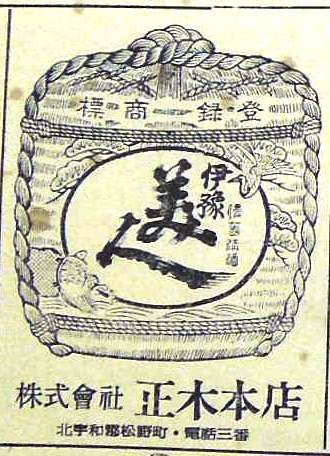 登録商標
伊豫
美人
株式會社 正木本店
北宇和郡松野町・電話三番